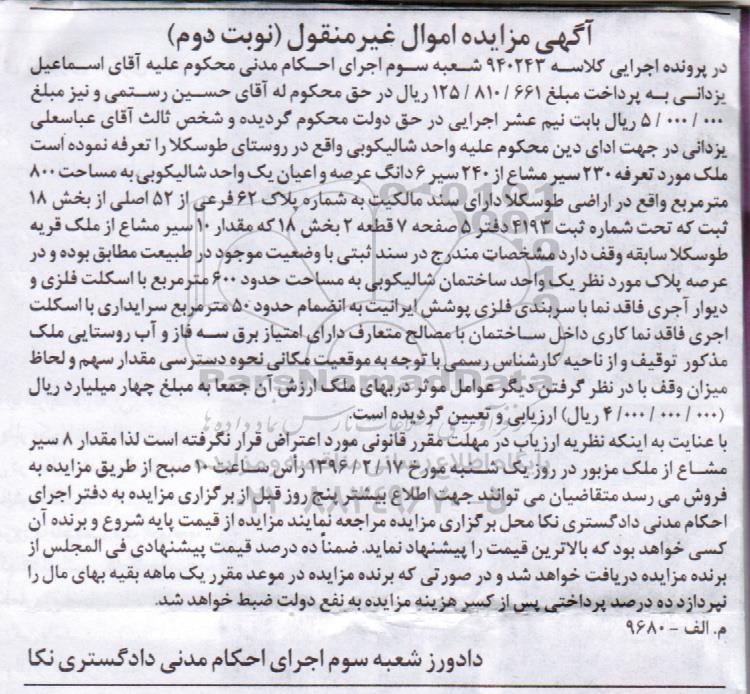 آگهی مزایده اموال غیرمنقول (نوبت دوم)
در پرونده اجرایی کلاسه ۹۴۰۲۴۳ شعبه سوم اجرای احکام مدنی محکوم علیه آقای اسماعیل
یزدانی به پرداخت مبلغ ۱۲۵/۸۱۰/۶۶۱ ریال در حق محکوم له آقای حسین رستمی و نیز مبلغ
۵/۰۰۰/۰۰۰ ریال بابت نیم عشر اجرایی در حق دولت محکوم گردیده و شخص ثالث آقای عباسعلی
یزدانی در جهت ادای دین محکوم علیه واحد شالیکوبی واقع در روستای طوسکلا را تعرفه نموده است
ملک مورد تعرفه ۲۳۰ سیر مشاع از ۲۴۰ سیر ۶ دانگ عرصه و اعیان یک واحد شالیکوبی به مساحت ۸۰۰
مترمربع واقع در اراضی طوسکلا دارای سند مالکیت به شماره پلاک ۶۲ فرعی از ۵۲ اصلی از بخش ۱۸
ثبت که تحت شماره ثبت ۴۱۹۳ دفتر ۵ صفحه ۷ قطعه ۲ بخش ۱۸ که مقدار ۱۰ سیر مشاع از ملک قریه
طوسکلا سابقه وقف دارد مشخصات مندرج در سند ثبتی با وضعیت موجود در طبیعت مطابق بوده و در
عرصه پلاک مورد نظر یک واحد ساختمان شالیکوبی به مساحت حدود ۶۰۰ مترمربع با اسکلت فلزی و
دیوار آجری فاقد نما با سربندی فلزی پوشش ایرانیت به انضمام حدود ۵۰ مترمربع سرایداری با اسکلت
اجری فاقد نما کاری داخل ساختمان با مصالح متعارف دارای امتیاز برق سه فاز و آب روستایی ملک
مذکور توقیف و از ناحیه کارشناس رسمی با توجه به موقعیت مکانی نحوه دسترسی مقدار سهم و لحاظ
میزان وقف با در نظر گرفتن دیگر عوامل موثر دربهای ملک ارزش آن جمعا به مبلغ چهار میلیارد ریال
(۴/۰۰۰/۰۰۰/۰۰۰ ریال) ارزیابی و تعیین گردیده است.
با عنایت به اینکه نظریه ارزیاب در مهلت مقرر قانونی مورد اعتراض قرار نگرفته است لذا مقدار ۸ سیر
مشاع از ملک مزبور در روز یک شنبه مورخ ۱۳۹۶/۲/۱۷ رأس ساعت ۱۰ صبح از طریق مزایده به
فروش می رسد متقاضیان می توانند جهت اطلاع بیشتر پنج روز قبل از برگزاری مزایده به دفتر اجرای
احکام مدنی دادگستری نکا محل برگزاری مزایده مراجعه نمایند مزایده از قیمت پایه شروع و برنده آن
کسی خواهد بود که بالاترین قیمت را پیشنهاد نماید. ضمناً ده درصد قیمت پیشنهادی فی المجلس از
برنده مزایده دریافت خواهد شد و در صورتی که برنده مزایده در موعد مقرر یک ماهه بقیه بهای مال را
نپردازد ده درصد پرداختی پس از کسر هزینه مزایده به نفع دولت ضبط خواهد شد.
م. الف - ۹۶۸۰
دادورز شعبه سوم اجرای احکام مدنی دادگستری نکا
ParsNamadData